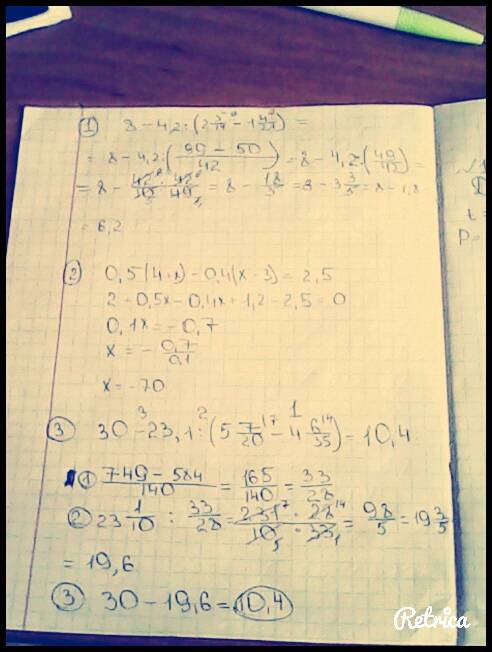 ① 8 - 4,2 : (2 5/14 - 1 4/21) =
= 8 - 4,2 : (99 - 50 / 42) = 8 - 4,2 : (49/42) =
= 8 - 42/10 · 42/49 = 8 - 18/5 = 8 - 3 3/5 = 8 - 1,8
= 6,2
② 0,5(4+x) - 0,4(x-3) = 2,5
2 + 0,5x - 0,4x + 1,2 - 2,5 = 0
0,1x = -0,7
x = - 0,7/0,1
x = -70
③ 30 - 23,1 : (5 7/20 - 4 6/35) = 10,4
① 749 - 584 / 140 = 165/140 = 33/28
② 23 1/10 : 33/28 = 231 · 28 / 10 · 33 = 98/5 = 19 3/5
= 19,6
③ 30 - 19,6 = 10,4
Retrica